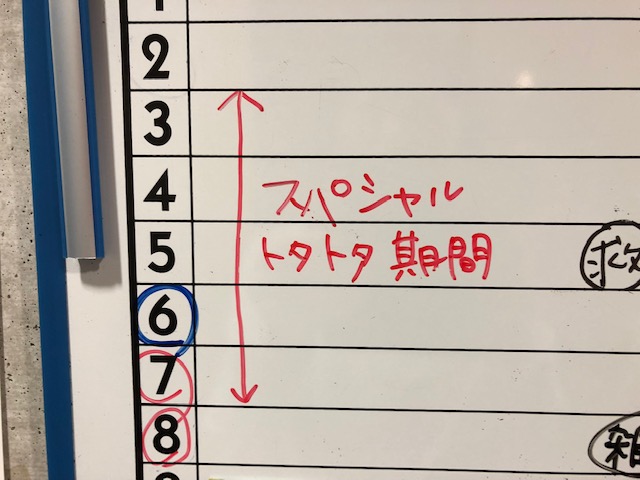 2
3
4
スパシャル
5
トタトタ期間
6
7
8